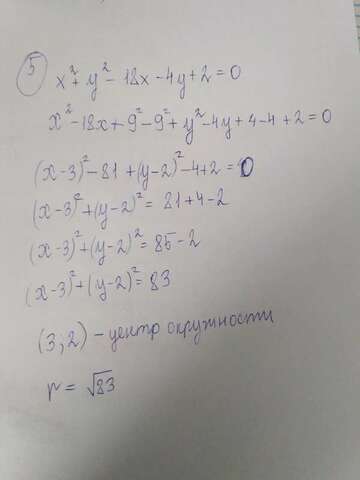 5
x² + y² - 18x - 4y + 2 = 0
x² - 18x + 9² - 9² + y² - 4y + 4 - 4 + 2 = 0
(x-3)² - 81 + (y-2)² - 4 + 2 = 0
(x-3)² + (y-2)² = 81 + 4 - 2
(x-3)² + (y-2)² = 85 - 2
(x-3)² + (y-2)² = 83
(3; 2) - центр окружности
r = √83